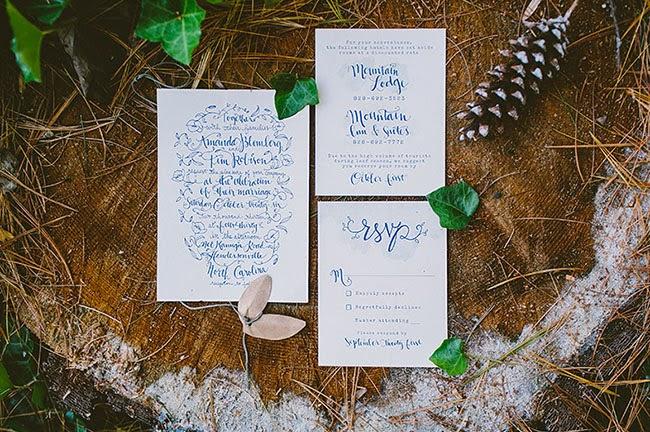 Together
with their families
Amanda Blomberg
and
Kim Robison
request the pleasure of your company
at the celebration
of their marriage
Saturday October twenty six
two thousand thirteen
at four thirty
in the afternoon
Road
Hendersonville
North Carolina
reception to
For your convenience,
the following hotels have set aside
rooms at a discounted rate
Mountain
Lodge
828-692-3523
Mountain
Inn & Suites
828-692-7772
Due to the high volume of tourists
during leaf season, we suggest
you reserve your room by
October first
rsvp
M
Happily accepts
Regretfully declines
Number attending
Please respond by
September twenty first